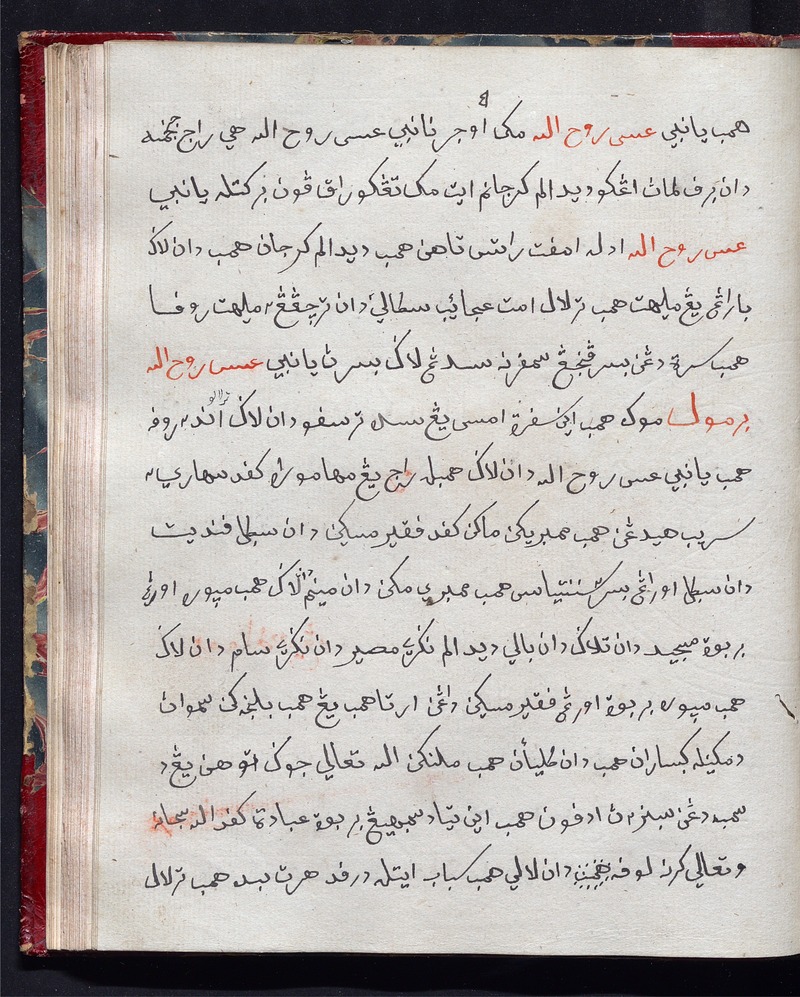 همب يانبي عيسى روح الله مك اوجر نانبي عيسى روح الله هي راج جمجمه
دان برف لمات اڠكو ديدالم كرجأن ايت مك تڠكورق ڤون بركتله يانبي
عيسى روح الله ادله امفت راتس تاهن همب ديدالم كرجان همب دان لاک
باراڠ يڠ مليهت همب ترلال امت عجائب سكالي دان ترچڠڠ مليهت روفا
همب سرة دڠن بسر ڤنجڠ سمفرنه سداڠ لاک بسرث يانبي عيسى روح الله
برمول موک همب اين سفرة امس يڠ سده ترسفو دان لاک ترلالو انده روف
همب يانبي عيسى روح الله دان لاک همبله راج يڠ مها موره كفد سهاري
سريب هيدڠن همب ممبريكن ماكن كفد فقير مسكين دان سكل فنديت
دان سكل اورڠ بسر سنتياس همب ممبري مكن دان لاک همب ميوره اورڠ
بربوة مسجد دان تلاک دان بالي ديدالم نڬري مصير دان نڬري سام دان لاک
همب ميوره بربوة اورڠ فقير مسكين دڠن ارتا همب يڠ همب بلنجكن سموان
دمكينله كبسارن همب دان كليأن همب ملنكن الله تعالى جوک توهن يڠ
سمبه دڠن سبنرث ادفون همب اين تياد سمبهيڠ بربوة عبادة كفد الله سبحانه
وتعالى كرنه لوف دان لالي همب سباب ايتله درفد هرت بند همب ترلال